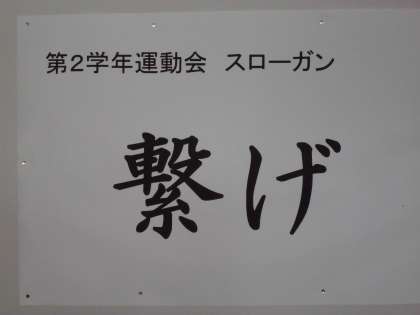 第2学年運動会　スローガン
繋げ